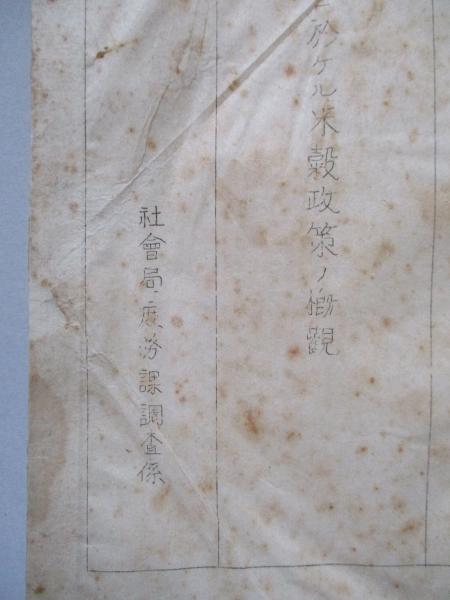 ニ於ケル米穀政策ノ概観
社會局庶務課調査係